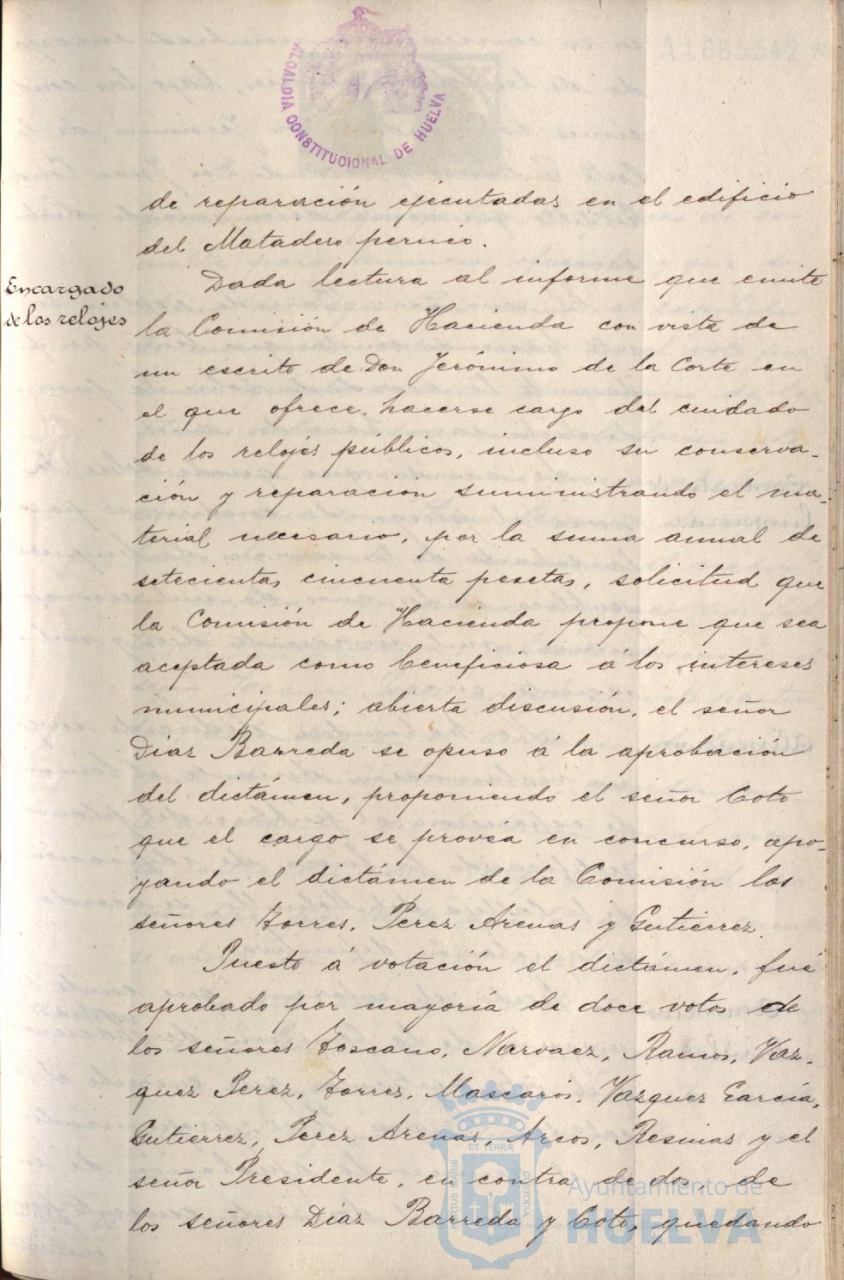 ALCALDIA CONSTITUCIONAL DE HUELVA
A1683542*
de reparación ejecutadas en el edificio
del Matadero
Encargado
de los relojes
Dada lectura al informe que emite
la Comisión de Hacienda con vista de
un escrito de Don Jerónimo de la Corte en
el que ofrece hacerse cargo del cuidado
de los relojes públicos, incluso su conserva-
ción y reparación suministrando el ma-
terial necesario, por la suma anual de
setecientas cincuenta pesetas, solicitud que
la Comisión de Hacienda propone que sea
aceptada como beneficiosa á los intereses
municipales; abierta discusión, el señor
Díaz Barreda se opuso á la aprobación
del dictámen, proponiendo el señor Coto
que el cargo se provéa en concurso, apo-
yando el dictámen de la Comisión los
señores Torres, Perez Arenas y Gutierrez.
Puesto á votación el dictámen, fué
aprobado por mayoría de doce votos de
los señores Toscano, Narvaez, Ramos, Vaz-
quez Perez, Torres, Mascarós, Vazquez García,
Gutierrez, Perez Arenas, Arcos, Resinas y el
señor Presidente, en contra de dos, de
los señores Díaz Barreda y Coto, quedando
Ayuntamiento de
HUELVA